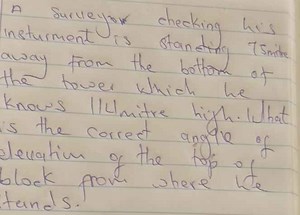 A surveyor checking his
insturment is standing 75mitre
away from the bottom of
the tower which he
knows 114mitre high. What
is the correct angle of
elevation of the top of
block from where he
tands.